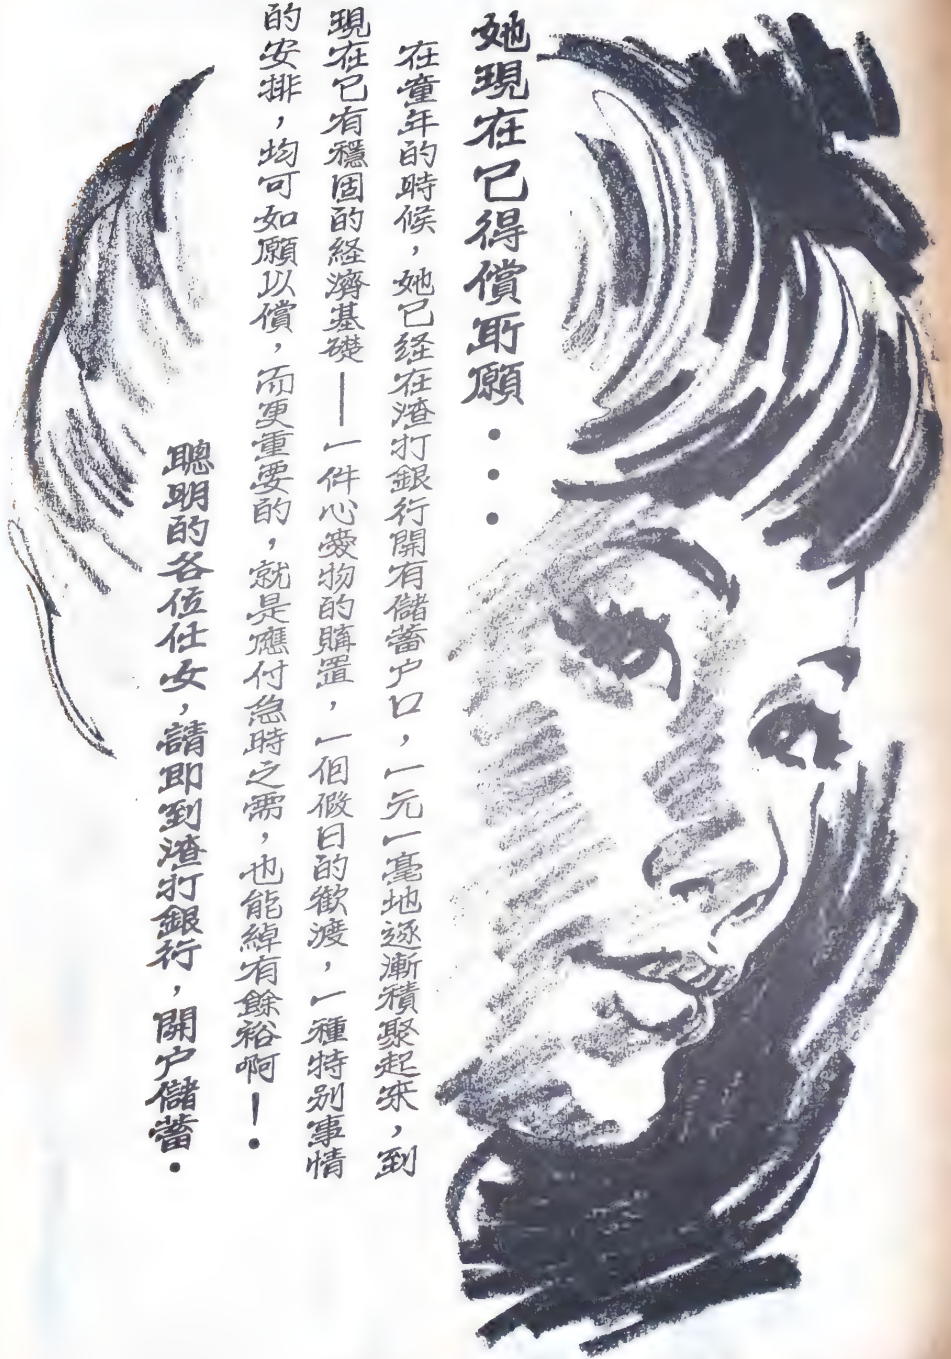 她現在已得償所願・・・
在童年的時候，她已经在渣打銀行開有儲蓄户口，一元一毫地逐漸積聚起來，到
現在已有穩固的経濟基礎——一件心爱物的購置，一個假日的歡渡，一種特别事情
的安排，均可如願以償，而更重要的，就是應付急時之需，也能綽有餘裕啊！・
聰明的各位仕女，請即到渣打銀行，開户儲蓄・